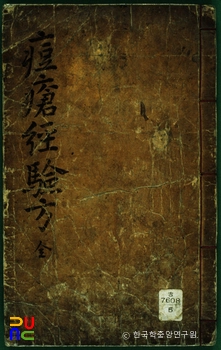 痘瘡經驗方 全
7608
© 한국학중앙연구원